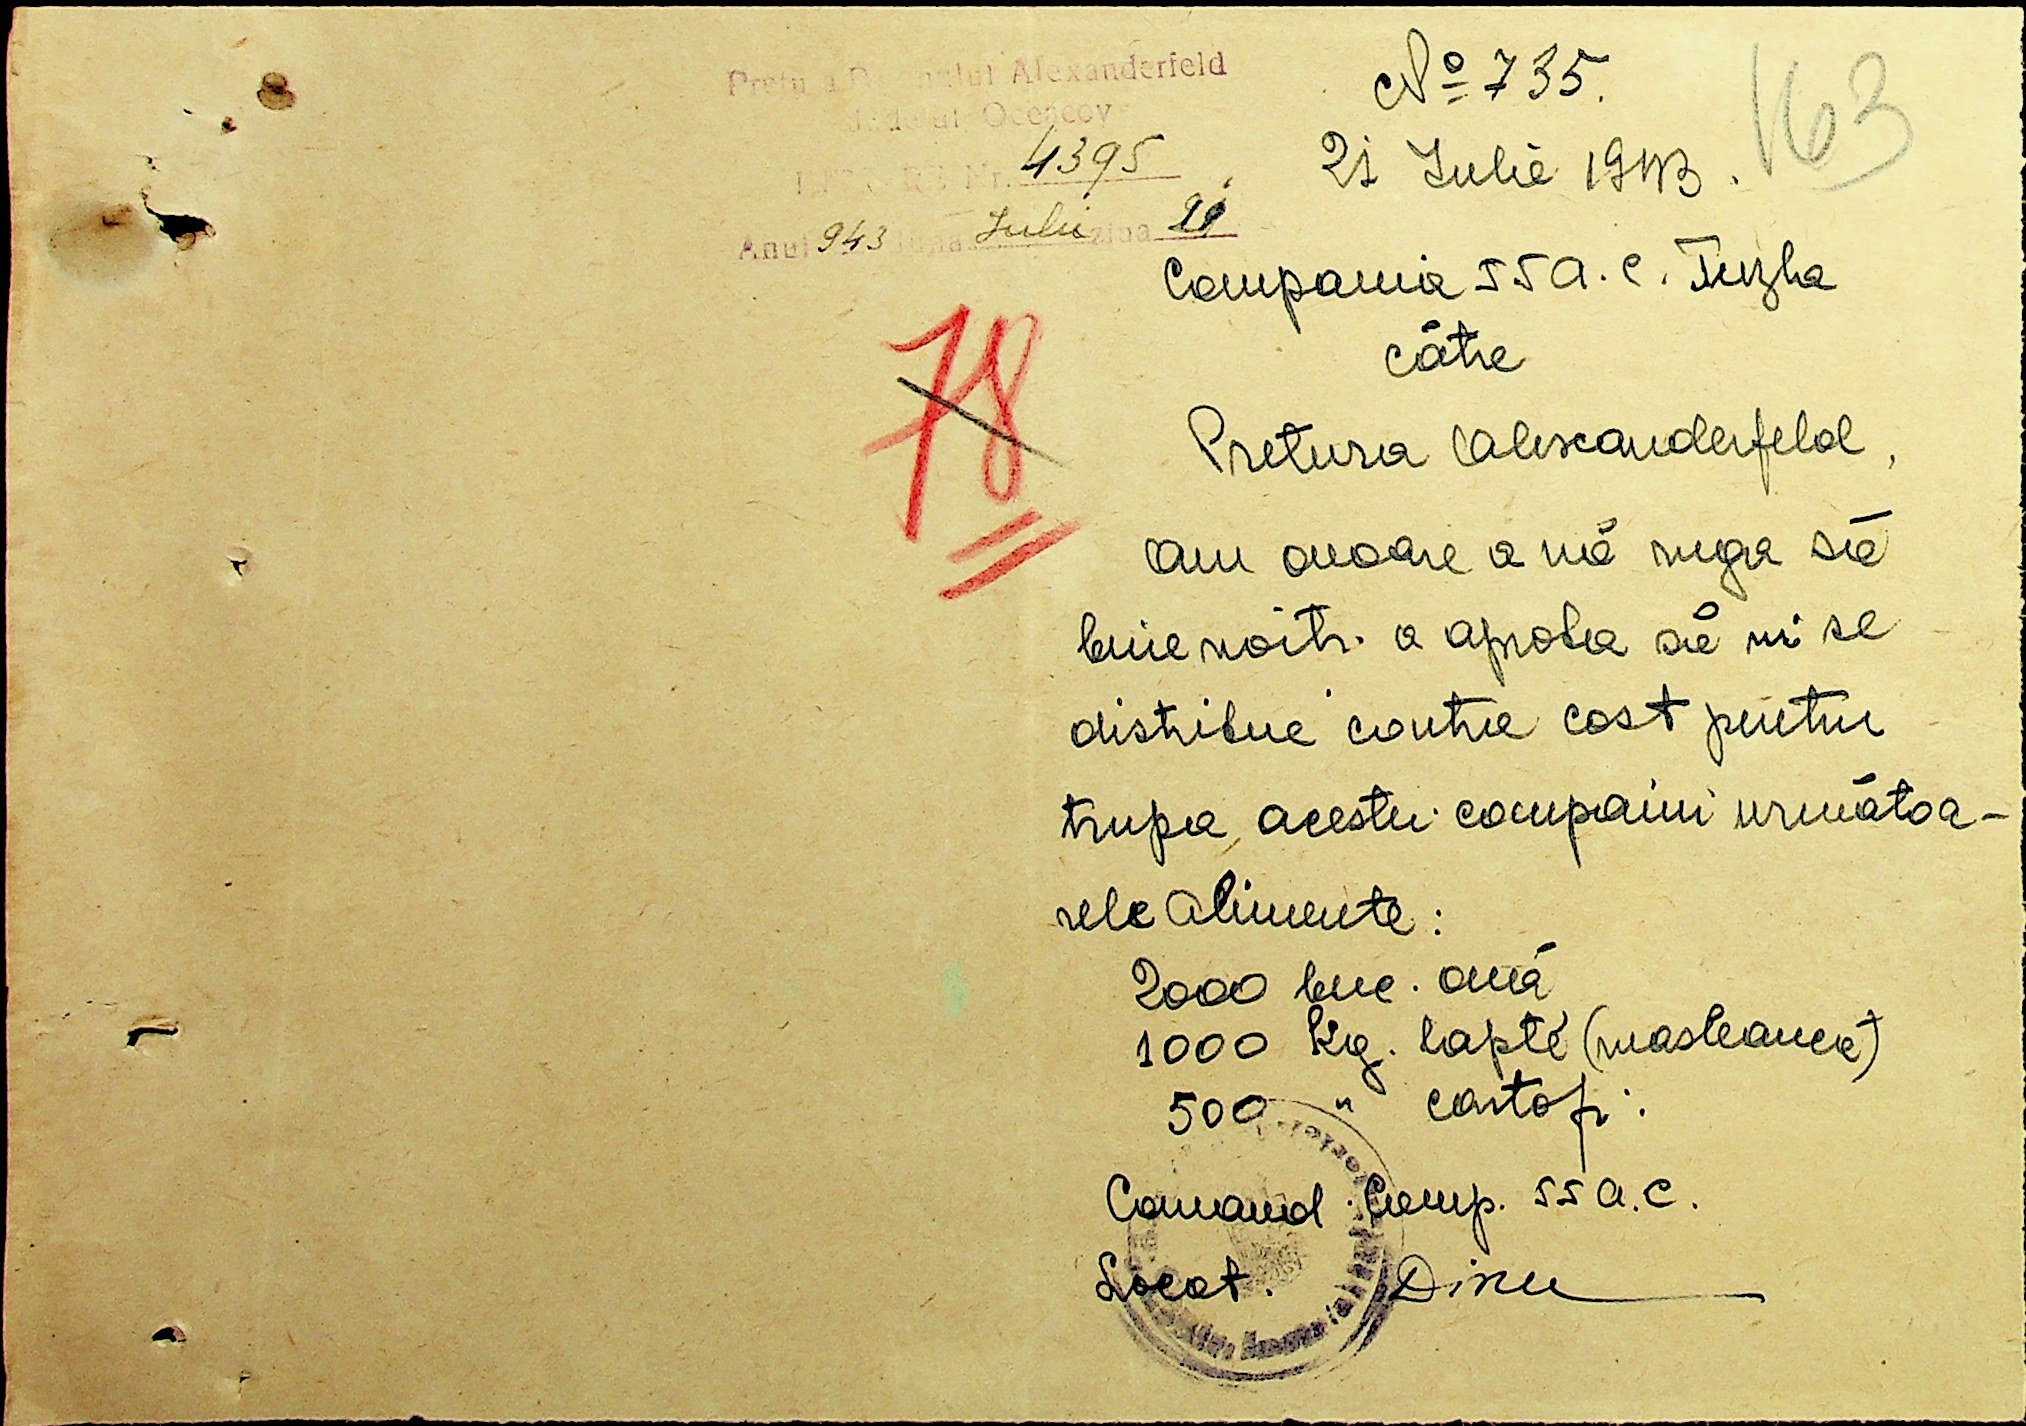 Pretura Raionului Alexanderfeld
Judetul Oceacov
INTRARE Nr. 4395
Anul 943 luna Iulie ziua 21
No 735.
163
21 Iulie 1943.
Compania 55 a.c. Tuzla
către
Pretura Alexanderfeld,
78
Am onoare a vă ruga să
bine voiți a aproba să ni se
distribue contra cost pentru
trupa acestei companii următoa-
rele alimente:
2000 buc. ouă
1000 kg. lapte (masleancă)
500 " cartofi.
Comand. Comp. 55 a.c.
Locot. Dinu